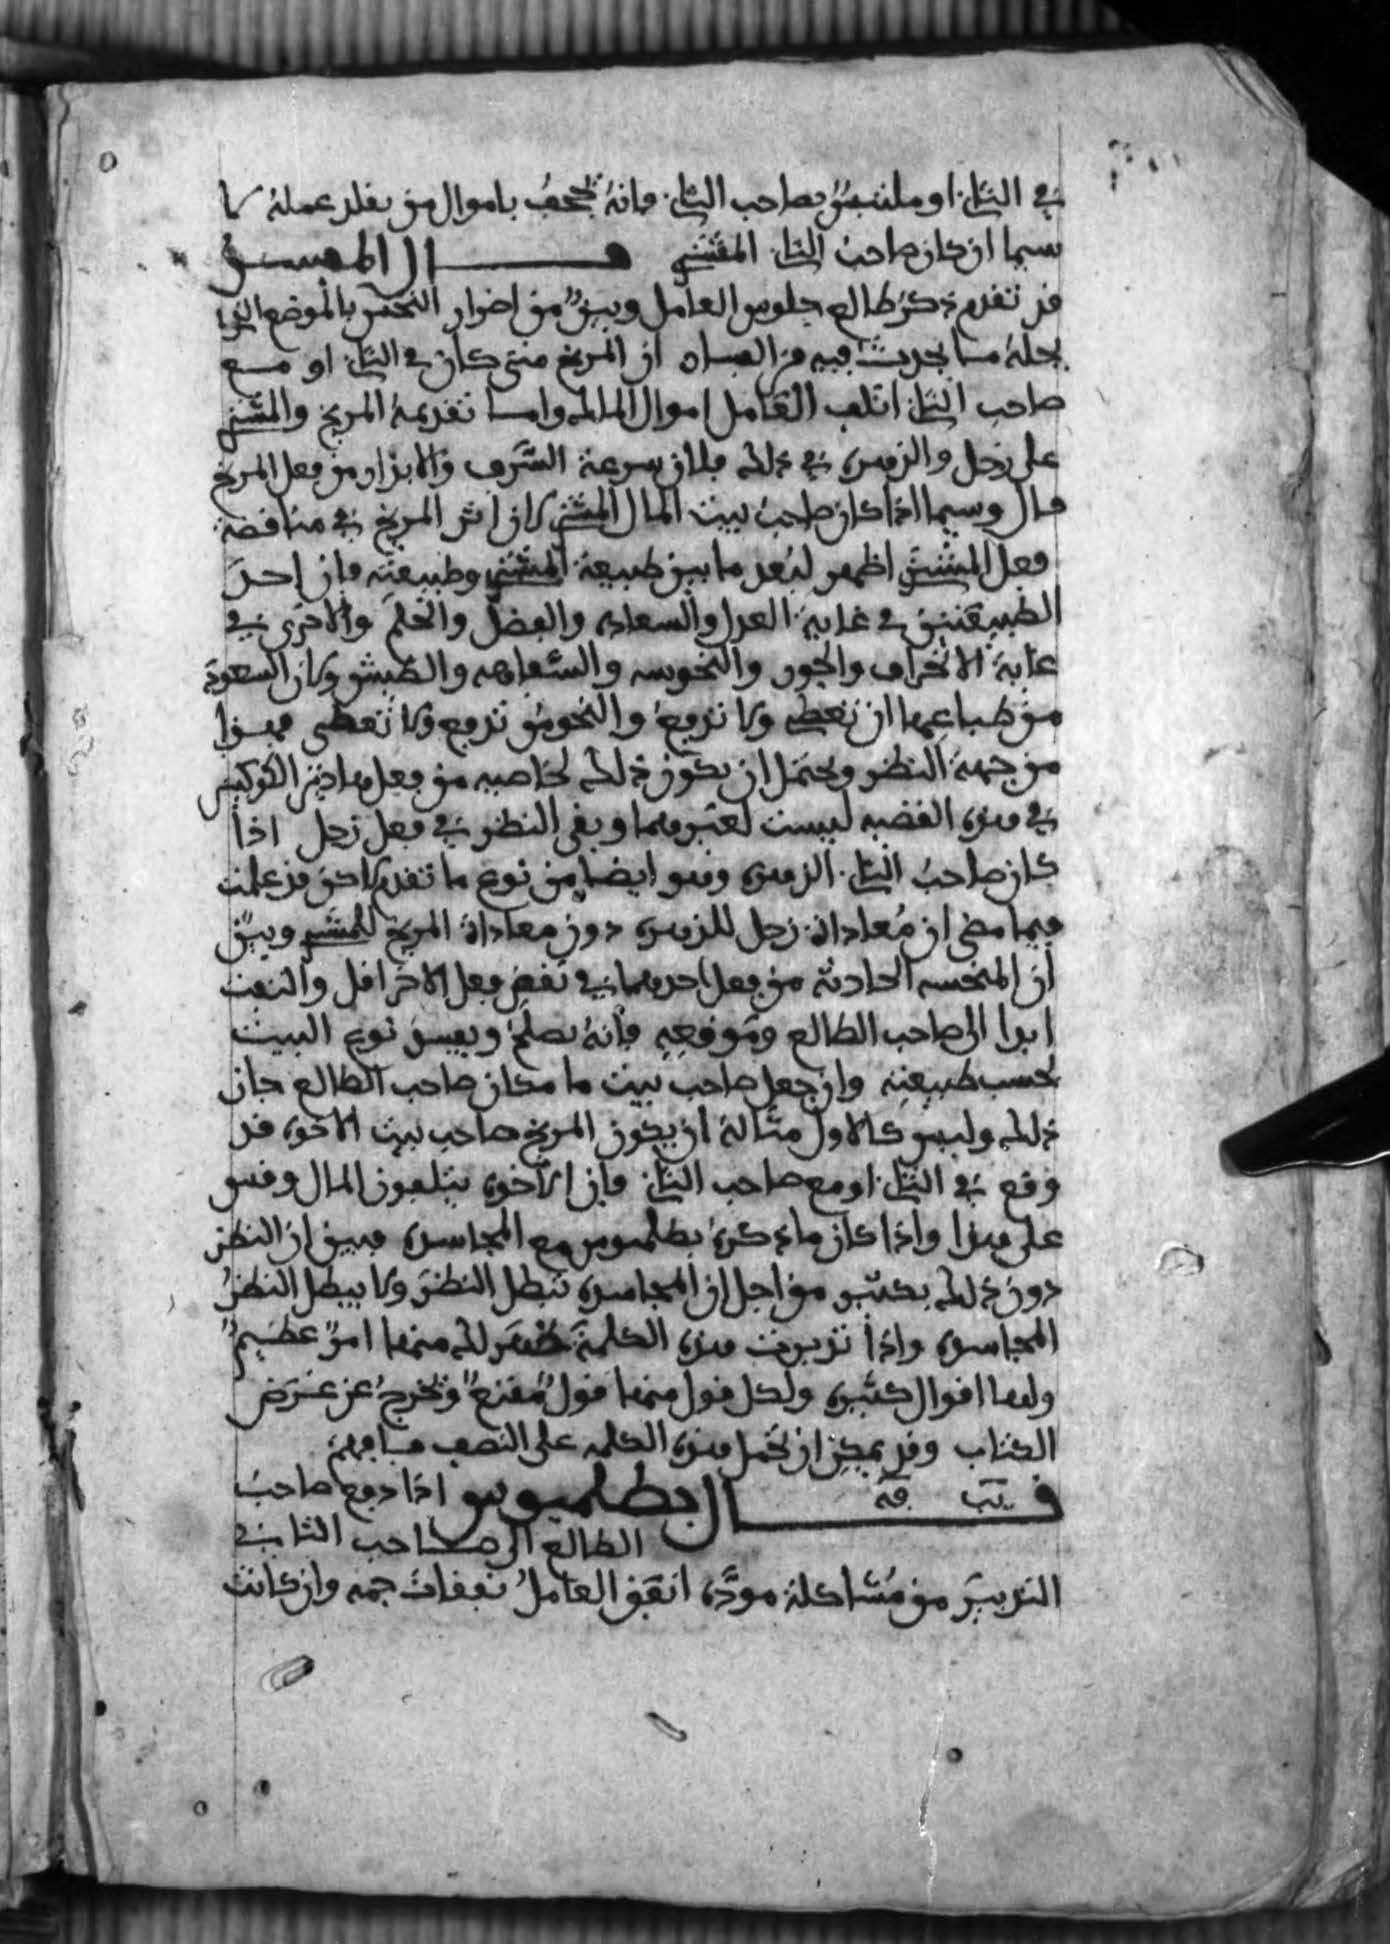 في الثاني او ملتبس بصاحب الثاني فانه يجحف باموال من يقلد عمله لا
سيما ان كان صاحب الثاني المشتري قال المفسر
قد تقدم ذكر طالع جلوس العامل وبين من اضرار النحس بالموضع الذي
يحله ما يحدث فيه من الفساد ان المريخ متى كان في الثاني او مع
صاحب الثاني اتلف العامل اموال الملك واما تقديمه المريخ والمشتري
على زحل والزهرة في ذلك فلان سرعة السرف والابزار من فعل المريخ
قال وسيما اذا كان صاحب بيت المال المشتري لان اثر المريخ في مناقضة
فعل المشتري اظهر لبعد ما بين طبيعة المشتري وطبيعته فان احد
الطبيعتين في غاية العدل والسعادة والفضل والحلم والاخرى في
غاية الانحراف والجور والنحوسه والسفاهه والطيش ولان السعود
من طباعها ان تعطي ولا تدفع والنحوس تدفع ولا تعطي فهذا
من جهة النظر ويحتمل ان يكون ذلك لخاصيه من فعل هاذين الكوكبين
في هذه القضيه ليست لغيرهما وبقى النظر في فعل زحل اذا
كان صاحب الثاني الزهرة وهو ايضا من نوع ما تقدم لاكن قد علمت
فيما مضى ان معاداة زحل للزهرة دون معاداة المريخ للمشتري وبين
ان المنحسه الحادثة من فعل احدهما في نقض فعل الاخر اقل والتفت
ابدا الى صاحب الطالع وموقعه فانه يصلح ويفسد نوع البيت
بحسب طبيعته وان جعل صاحب بيت ما مكان صاحب الطالع جاز
ذلك وليس كالاول مثاله ان يكون المريخ صاحب بيت الاخوة قد
وقع في الثاني او مع صاحب الثاني فان الاخوة يتلفون المال وقس
على هذا واذا كان ما ذكره بطلميوس مع المجاسدة فبين ان النظر
دون ذلك بكثير من اجل ان المجاسدة تبطل النظر ولا يبطل النظر
المجاسدة واذا تدبرت هذه الكلمة ظهر لك منها امر عظيم
ولها اقوال كثيرة ولكل قول منها قول مقنع وتخرج عن غرض
الكتاب وقد يمكن ان تحمل هذه الكلمه على النصف فافهم
قال بطلميوس اذا دفع صاحب
الطالع الى صاحب الثاني
التدبير من مشاكلة مودة انفق العامل نفقات جمه وان كانت